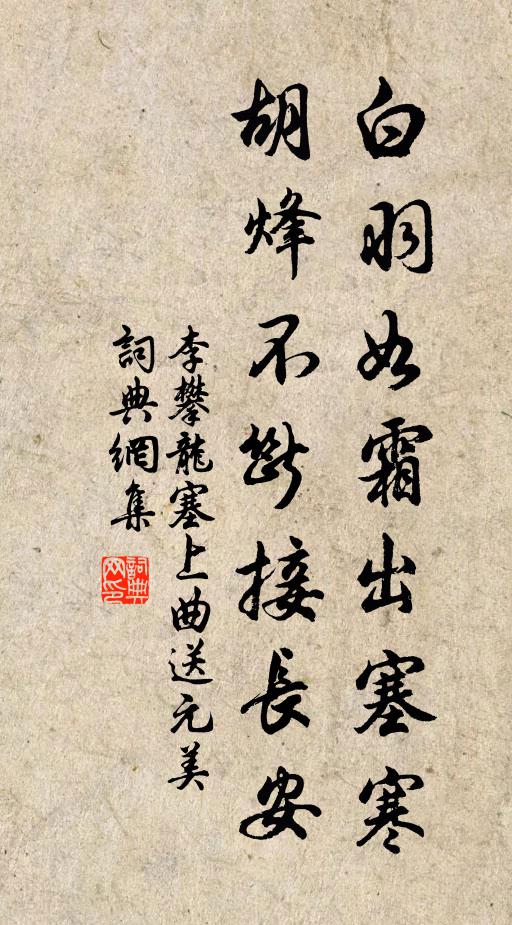 白羽如霜出塞寒
胡烽不斷接長安
李攀龍塞上曲送元美
詞典網集
詞典網印